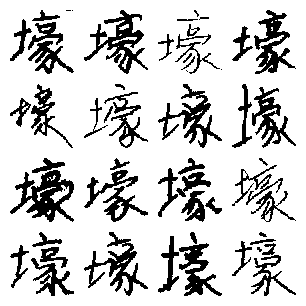 壕壕壕壕
壕壕壕壕
壕壕壕壕
壕壕壕壕